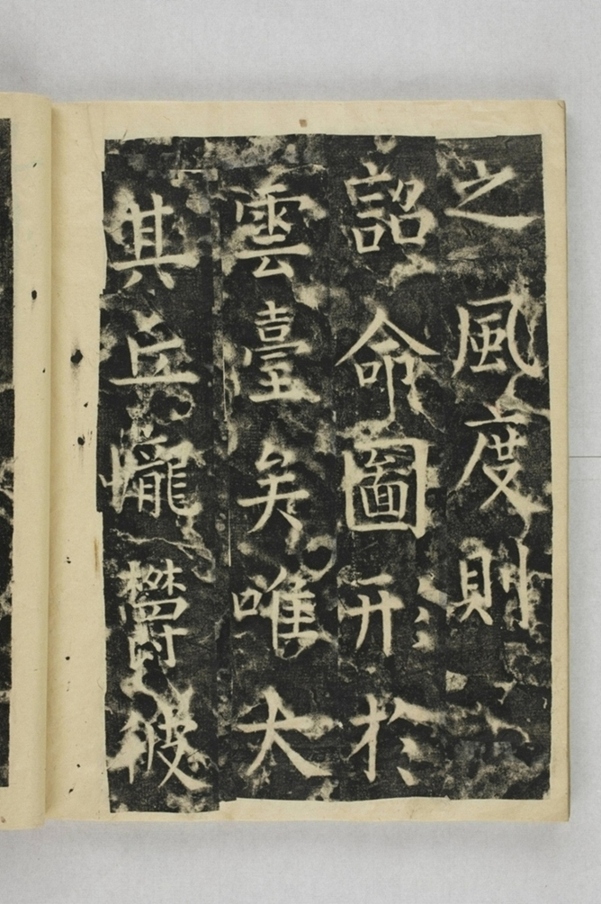 之風度則
詔命圖形於
雲臺矣唯大
其丘壠欝彼